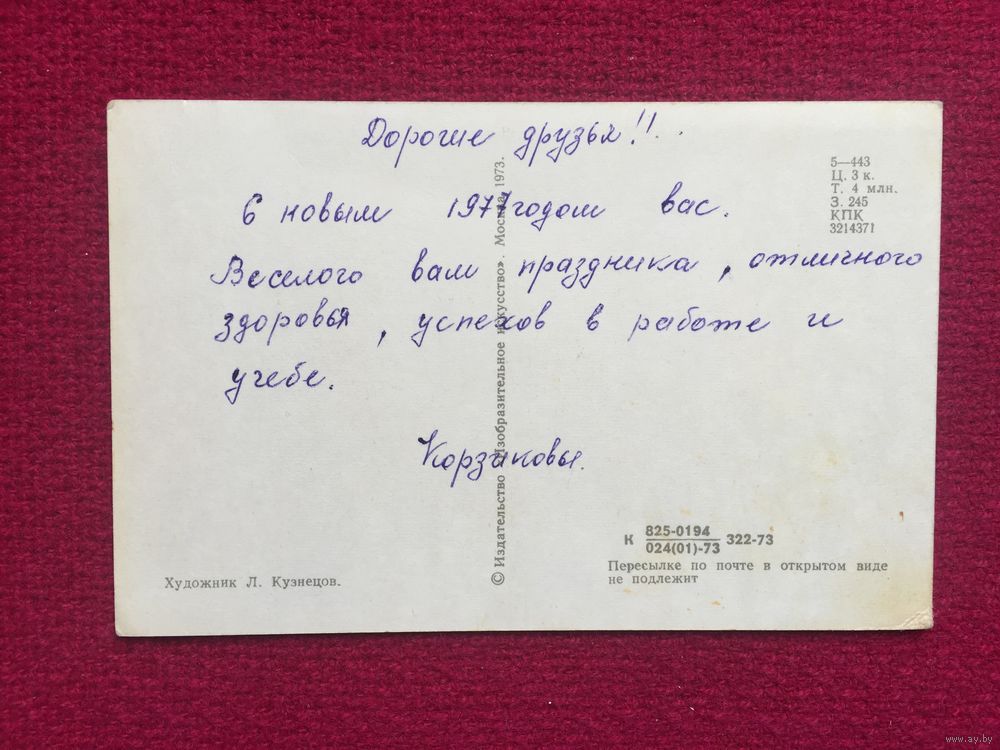 Дорогие друзья!!
С новым 1977 годом вас.
Веселого вам праздника, отличного
здоровья, успехов в работе и
учебе.
Корзиковы.
5—443
Ц. 3 к.
Т. 4 млн.
З. 245
КПК
3214371
© Издательство «Изобразительное искусство». Москва. 1973.
Художник Л. Кузнецов.
К 825-0194
024(01)-73 322-73
Пересылке по почте в открытом виде
не подлежит
www.ay.by